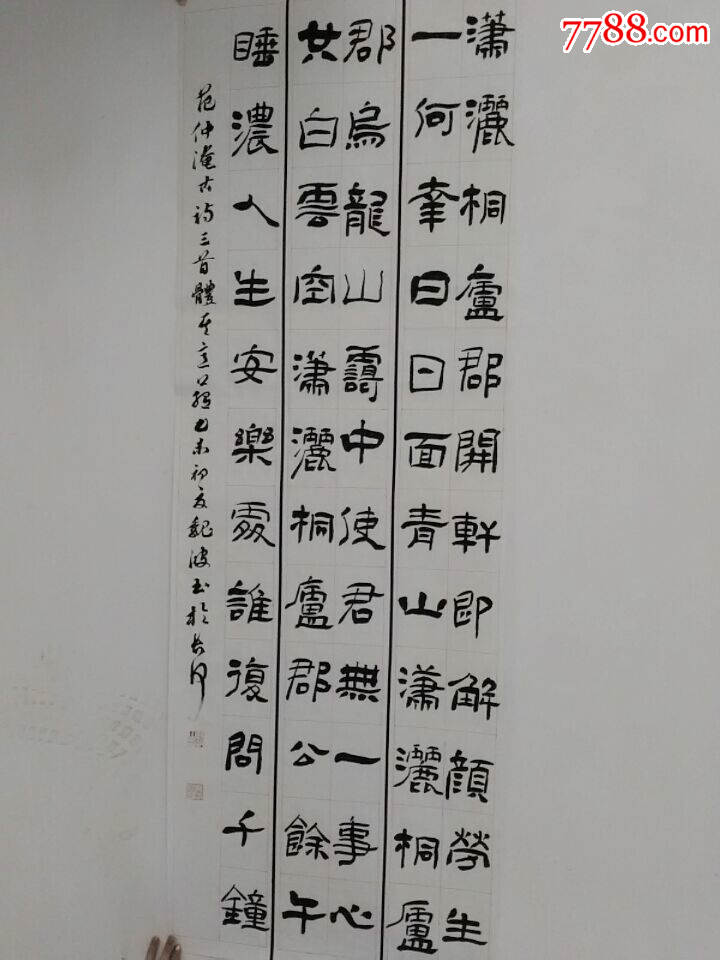 7788.com
瀟灑桐廬郡開軒即解顏勞生
一何幸日日面青山瀟灑桐廬
郡烏龍山靄中使君無一事心
共白雲空瀟灑桐廬郡公餘午
睡濃人生安樂處誰復問千鐘
范仲淹古詩三首體乙未初夏魏波书於